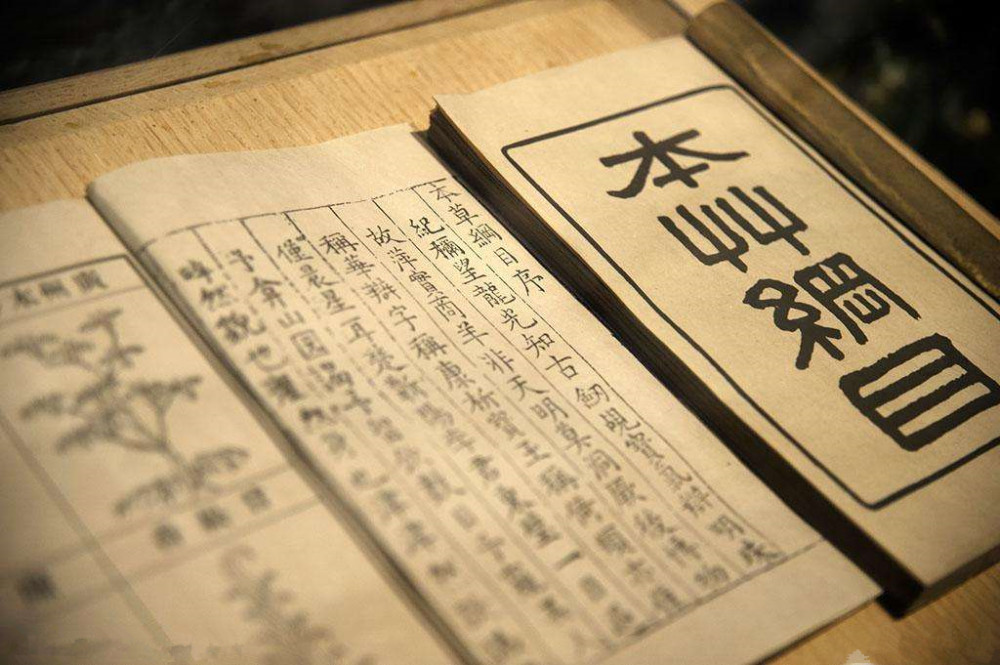 本艸綱目
本草綱目序
紀稱望龍光知古劒覘寶氣辯明珠
故萍實商羊非天明莫洞厥後博物
稱華辯字稱康析寶玉稱倚頓亦
僅晨星耳楚蘄陽李君東璧一日過
予弇山園謁予留飲數日予窺其人
睟然貌也癯然身也津津